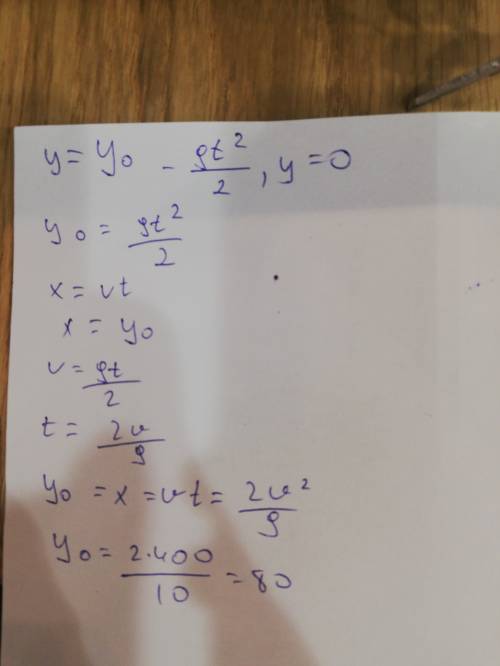 y = y₀ - gt²/2, y = 0
y₀ = gt²/2
x = vt
x = y₀
v = gt/2
t = 2v/g
y₀ = x = vt = 2v²/g
y₀ = 2·400/10 = 80